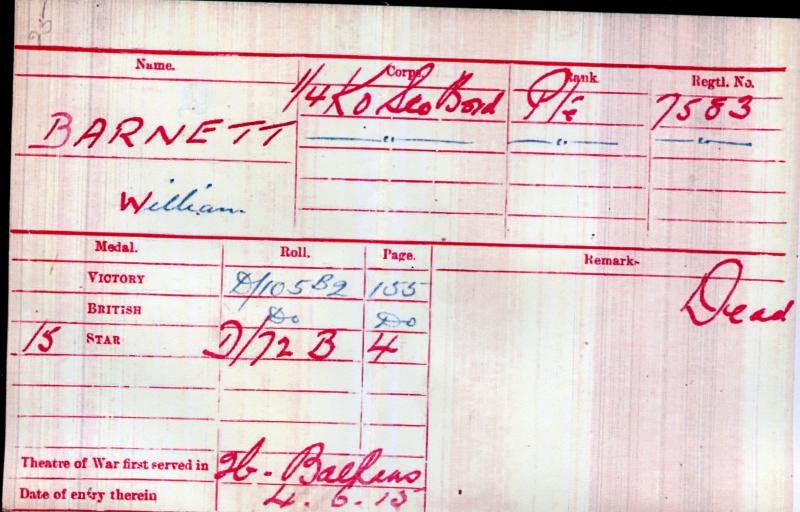 Name. Corps. Rank. Regtl. No.
1/4 K O Sco Bord Pte 7583
BARNETT
" " "
William
Medal. Roll. Page. Remarks.
VICTORY D/105 B2 155
Dead
BRITISH Do Do
15 STAR D/72 B 4
Theatre of War first served in 2b - Balkans
Date of entry therein 4. 6. 15